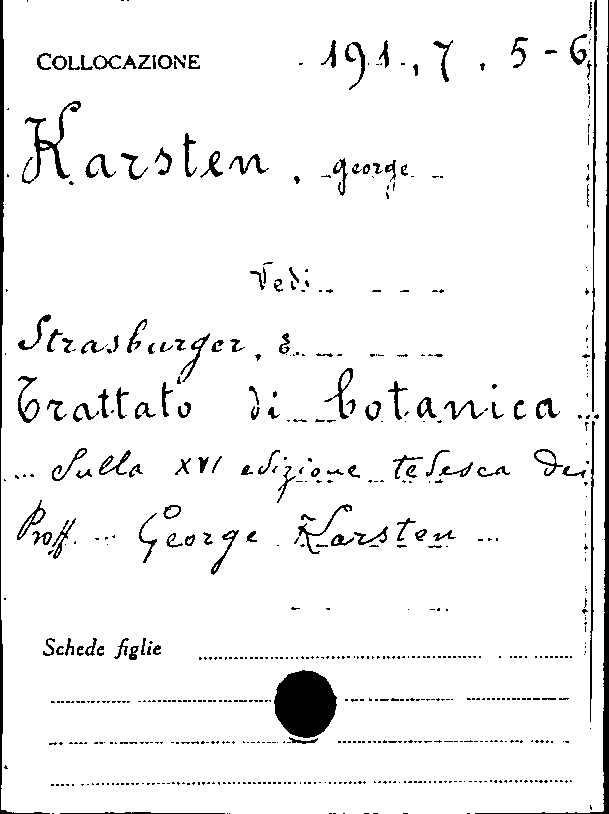 COLLOCAZIONE 191.,7.5-6
Karsten, george
Vedi
Strasburger, E.
Trattato di botanica ...
... Sulla XVI edizione tedesca dei
Proff. ... George Karsten ...
Schede figlie